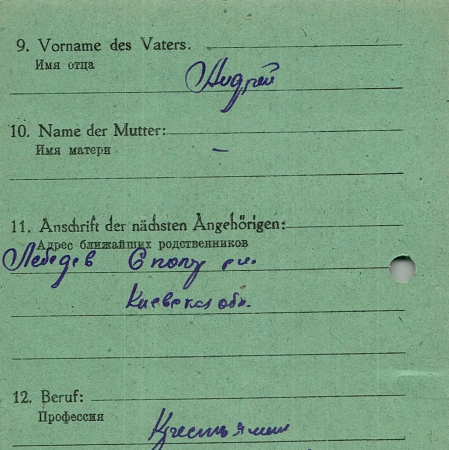 9. Vorname des Vaters.
Имя отца
Андрей
10. Name der Mutter:
Имя матери
–
11. Anschrift der nächsten Angehörigen:
Адрес ближайших родственников
Лебедев
Киевская обл.
12. Beruf:
Профессия
Крестьянин